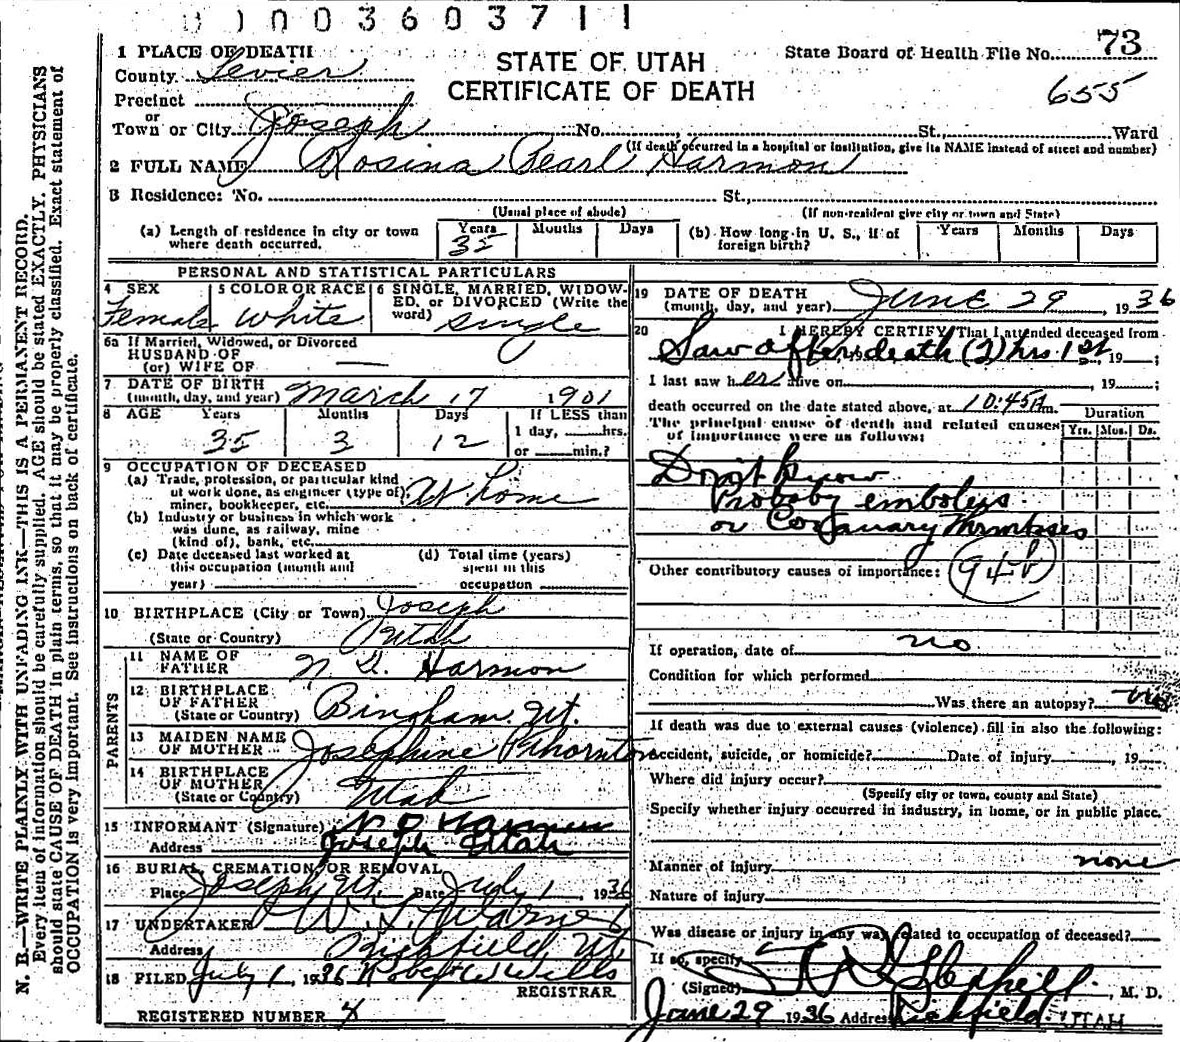 003603711
1 PLACE OF DEATH
County Sevier
STATE OF UTAH
CERTIFICATE OF DEATH
State Board of Health File No. 73
655
Precinct
or
Town or City Joseph No. St., Ward
(If death occurred in a hospital or institution, give its NAME instead of street and number)
2 FULL NAME Rosina Pearl Harmon
3 Residence: No. St.,
(Usual place of abode) (If non-resident give city or town and State)
(a) Length of residence in city or town where death occurred. Years 35 Months Days
(b) How long in U. S., if of foreign birth? Years Months Days
PERSONAL AND STATISTICAL PARTICULARS
4 SEX Female
5 COLOR OR RACE White
6 SINGLE, MARRIED, WIDOWED, or DIVORCED (Write the word) Single
6a If Married, Widowed, or Divorced
HUSBAND OF
(or) WIFE OF
7 DATE OF BIRTH
(month, day, and year) March 17 1901
8 AGE Years 35 Months 3 Days 12 If LESS than 1 day, hrs. or min.?
9 OCCUPATION OF DECEASED
(a) Trade, profession, or particular kind
of work done, as engineer (type of)
miner, bookkeeper, etc. At home
(b) Industry or business in which work
was done, as railway, mine
(kind of), bank, etc.
(c) Date deceased last worked at
this occupation (month and
year)
(d) Total time (years)
spent in this
occupation
10 BIRTHPLACE (City or Town) Joseph
(State or Country) Utah
PARENTS
11 NAME OF FATHER N. D. Harmon
12 BIRTHPLACE OF FATHER
(State or Country) Bingham Ut.
13 MAIDEN NAME OF MOTHER Josephine Thornton
14 BIRTHPLACE OF MOTHER
(State or Country) Utah
15 INFORMANT (Signature) N D Harmon
Address Joseph Utah
16 BURIAL, CREMATION, OR REMOVAL
Place Joseph Ut. Date July 1, 1936
17 UNDERTAKER
Address Richfield Ut.
18 FILED July 1, 1936 Robert W Wills
REGISTRAR.
REGISTERED NUMBER 4
19 DATE OF DEATH
(month, day, and year) June 29, 1936
20 I HEREBY CERTIFY, That I attended deceased from
Saw after death (2) hrs 1st, 19 ;
I last saw her alive on , 19 ;
death occurred on the date stated above, at 10:45 A m.
The principal cause of death and related causes
of importance were as follows:
Duration
Yrs. Mos. Ds.
Don't know
Probaby emboleps
or thrombsses
Other contributory causes of importance: 94b
If operation, date of no
Condition for which performed
Was there an autopsy? no
If death was due to external causes (violence) fill in also the following:
accident, suicide, or homicide? Date of injury , 19
Where did injury occur?
(Specify city or town, county and State)
Specify whether injury occurred in industry, in home, or in public place.
Manner of injury none
Nature of injury
Was disease or injury in any way related to occupation of deceased?
If so, specify
(Signed) , M. D.
June 29 1936 Address Richfield, UTAH
N. B.—WRITE PLAINLY WITH UNFADING INK—THIS IS A PERMANENT RECORD.
Every item of information should be carefully supplied. AGE should be stated EXACTLY. PHYSICIANS
should state CAUSE OF DEATH in plain terms, so that it may be properly classified. Exact statement of
OCCUPATION is very important. See instructions on back of certificate.